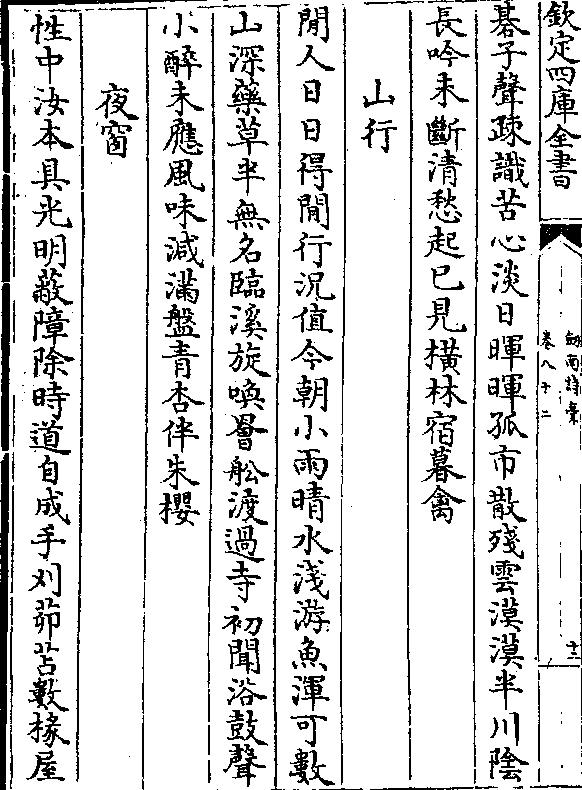 欽定四庫全書
劍南詩稾
卷八十二
十二
碁子聲疎識苦心淡日暉暉孤市散殘雲漠漠半川陰
長吟未斷清愁起已見橫林宿暮禽
山行
閒人日日得閒行况值今朝小雨晴水淺游魚渾可數
山深藥草半無名臨溪旋喚罾舩渡過寺初聞浴鼓聲
小醉未應風味減滿盤青杏伴朱櫻
夜窗
性中汝本具光明蔽障除時道自成手刈茆苫數椽屋